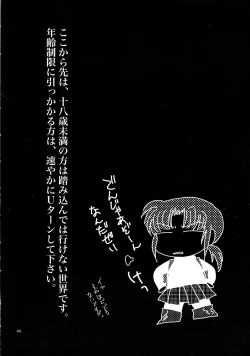 ここから先は、十八歳未満の方は踏み込んでは行けない世界です。
年齢制限に引っかかる方は、速やかにUターンして下さい。
なんだい
44